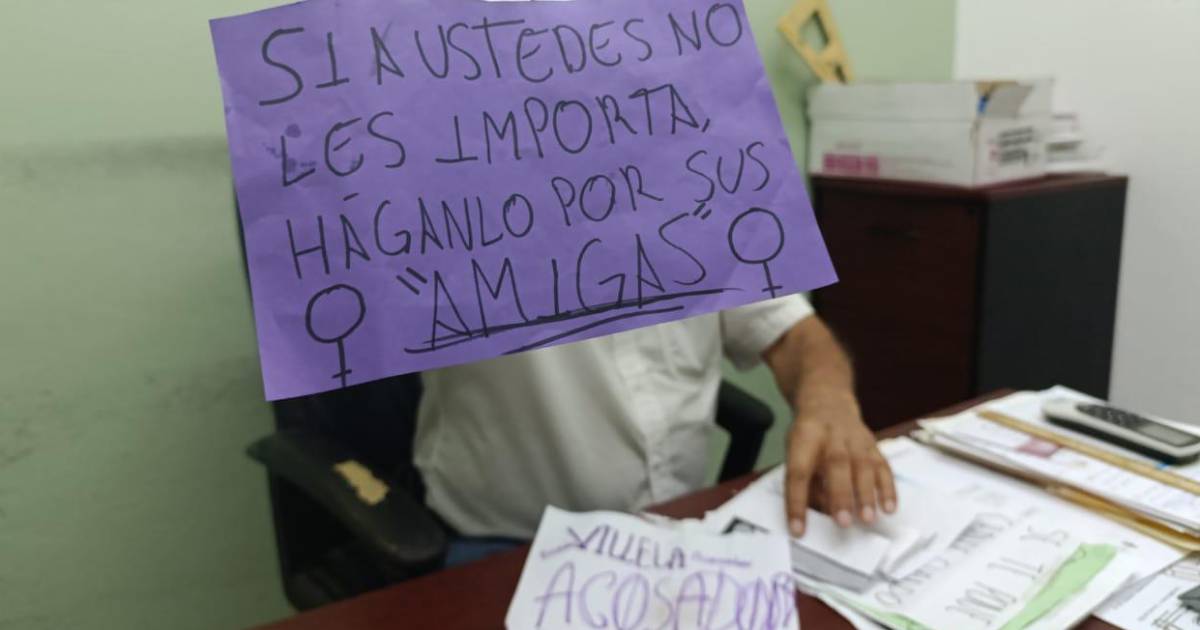 SI A USTEDES NO
LES IMPORTA,
HÁGANLO POR SUS
"AMIGAS"
VILLELA
ACOSADOR
SI TE